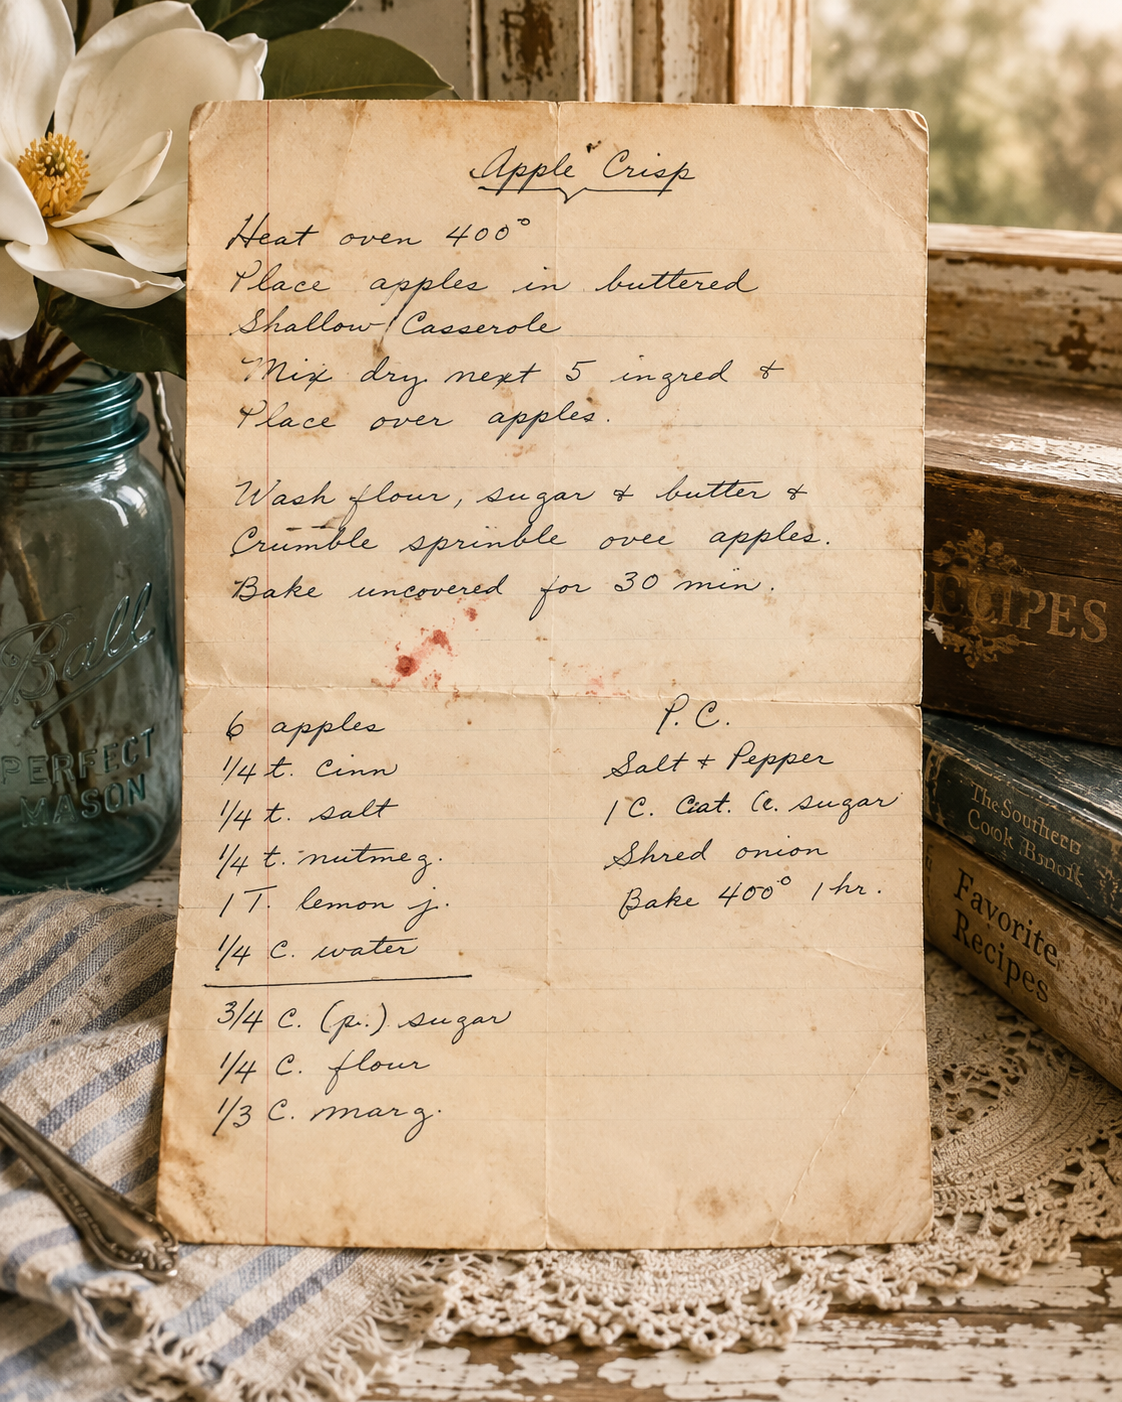 Apple Crisp
Heat oven 400°
Place apples in buttered
Shallow Casserole
Mix dry next 5 ingred &
Place over apples.
Wash flour, sugar & butter &
Crumble sprinble over apples.
Bake uncovered for 30 min.
6 apples
1/4 t. Cinn
1/4 t. salt
1/4 t. nutmeg.
1 T. lemon j.
1/4 C. water
3/4 C. (p.) sugar
1/4 C. flour
1/3 C. marg.
P. C.
Salt & Pepper
1 C. sugar
Shred onion
Bake 400° 1 hr.
Ball
PERFECT
MASON
RECIPES
The Southern
Cook
Favorite
Recipes